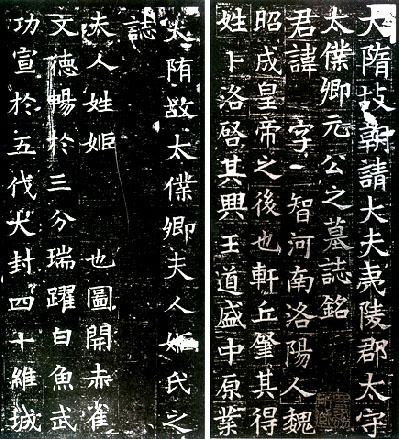 大隋故朝請大夫夷陵郡太守
太僕卿元公之墓誌銘
君諱 字 智河南洛陽人魏
昭成皇帝之後也軒丘肇其得
姓卜洛啓其興王道盛中原業
大隋故太僕卿夫人姬氏之
誌
夫人姓姬 也圖開赤雀
文德暢於三分瑞躍白魚武
功宣於五伐大封四十維城